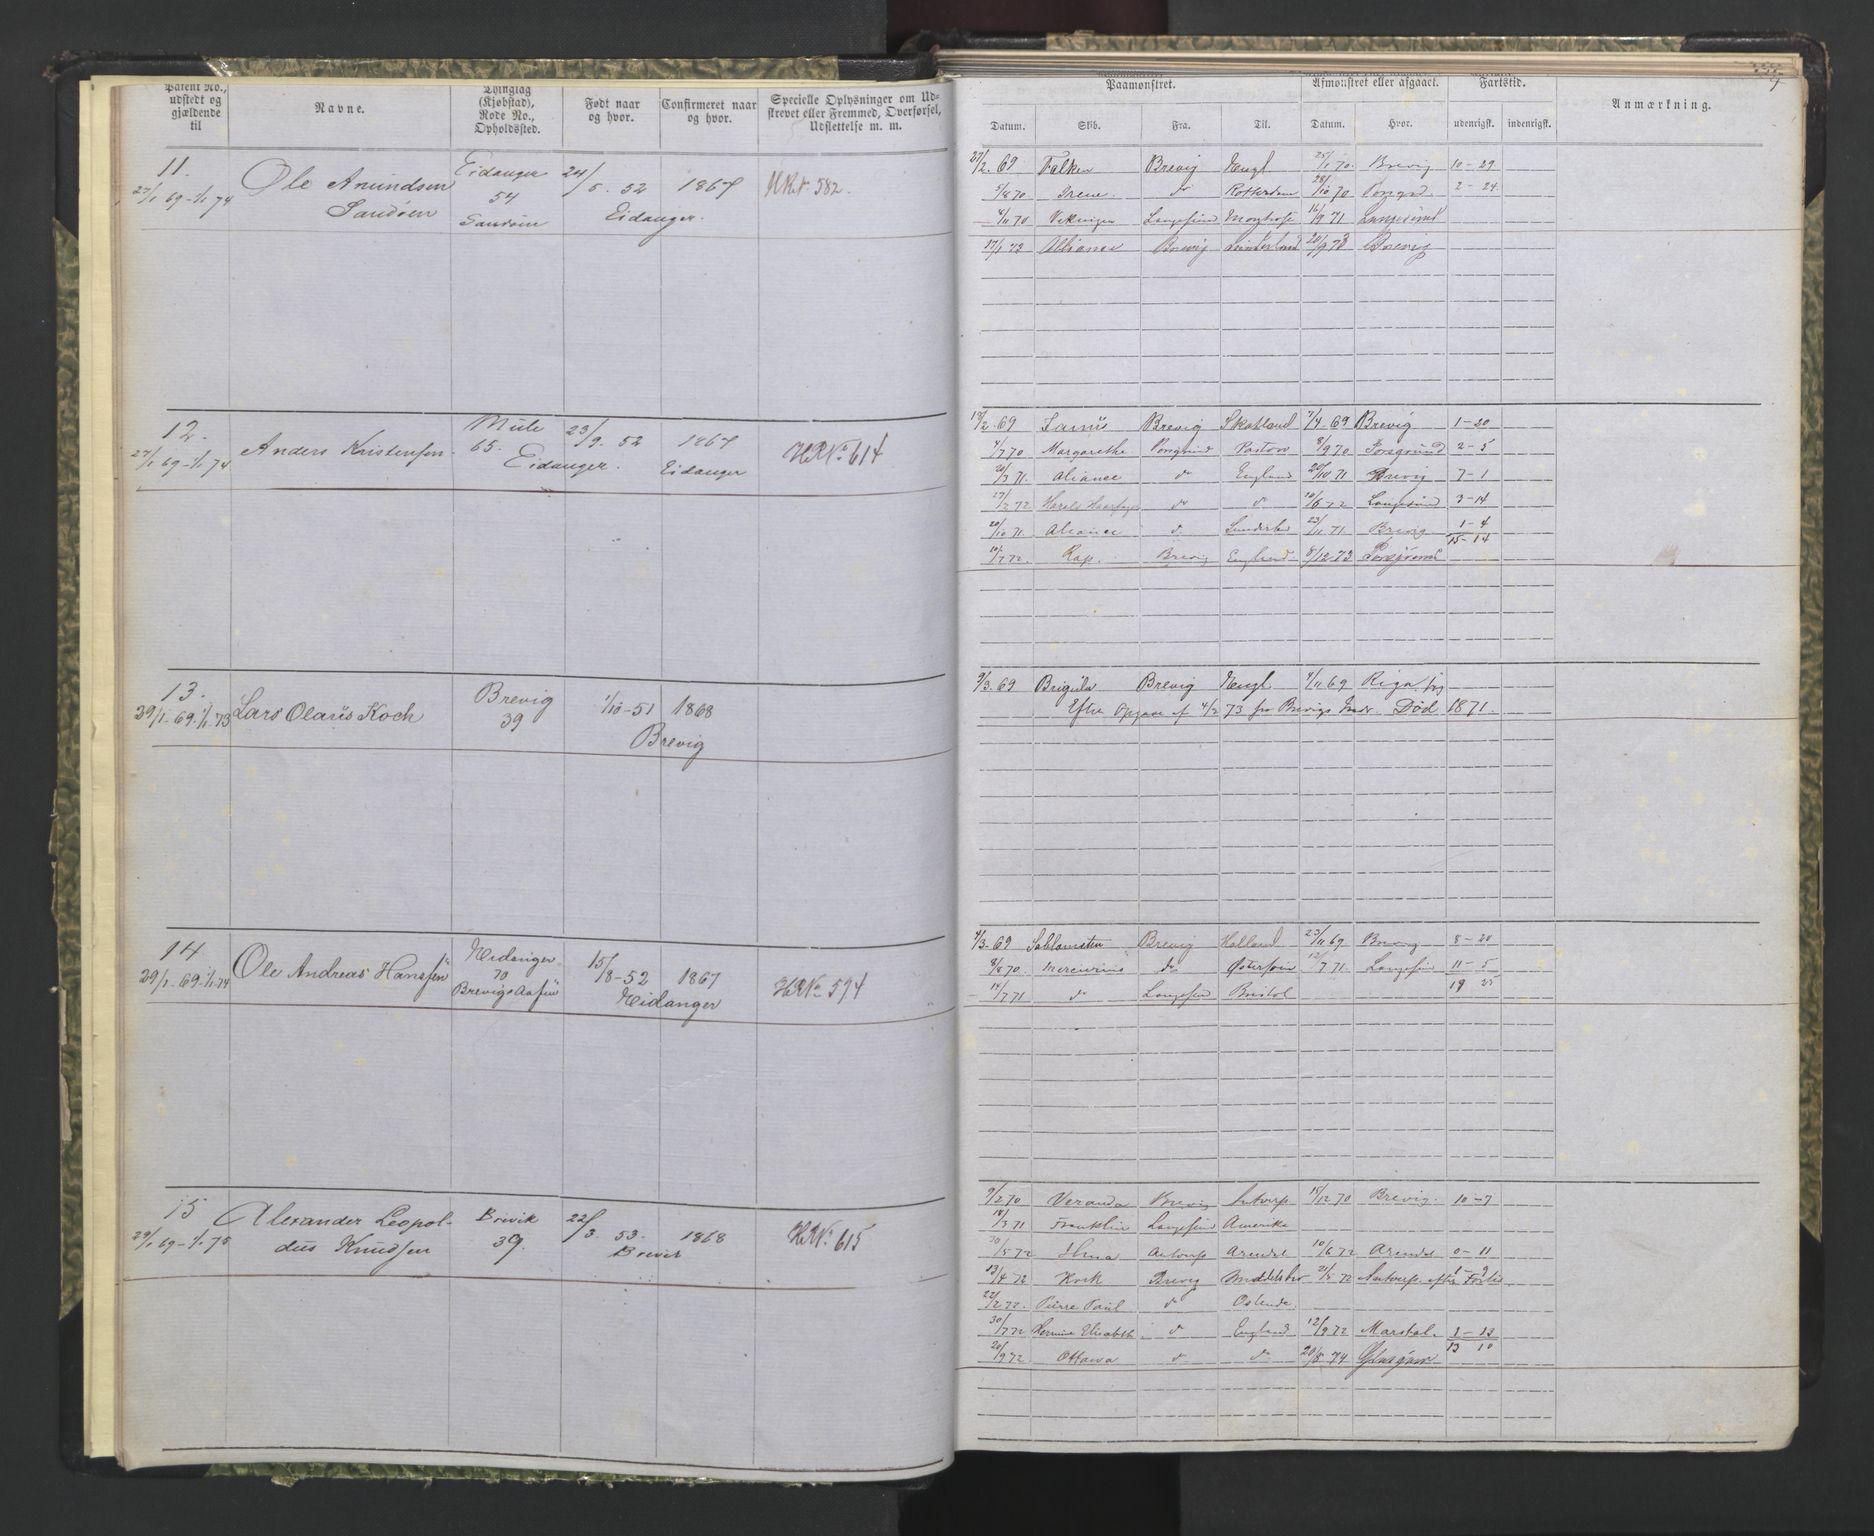 Patent No., udstedt og gjældende til
Navne.
Thinglag (Kjøbstad), Rode No., Opholdssted.
Født naar og hvor.
Confirmeret naar og hvor.
Specielle Oplysninger om Udskrevet eller Fremmed, Overførsel, Udslettelse m. m.
Paamønstret.
Afmønstret eller afgaaet.
Fartstid.
Anmærkning.
Datum. Skib. Fra. Til. Datum. Hvor. udenrigsk. indenrigsk.
11.
27/1 69-1/1 74
Ole Amundsen
Sandøen
Eidanger
54
Sandøen
24/5. 52
1867
Eidanger.
582.
27/2. 69 Falken Brevig Engl 25/1 70. Brevig 10-29
5/8 70 Irene do Rotterdam 28/10 70 2-24
4/11 70 Vikingen Langesund Montrose 16/9 71 Langesund
17/1 72 Aliance Brevig 20/9 73 Brevig
12.
27/1 69-1/1 74
Anders Kristensen
Mule
65.
Eidanger.
23/9. 52
1867
Eidanger
HRNo. 614
18/2. 69 Brevig Skotland 7/4-69 Brevig 1-20
4/7 70 Margarethe Porsgrund 8/9 70 Porsgrund 2-5
20/3 71. Aliance do England 20/10 71 Brevig 7-1
27/2 72 do do 10/6-72 Langesund 3-14
20/10 71. Aliance do 23/11 71 Brevig 1-4
15-14
10/7 72. Rap. Brevig England 8/12-73
13.
29/1-69-1/1 73
Lars Olaus Koch
Brevig
39
1/10-51
1868
Brevig
9/3. 69 Brigida Brevig Engl 4/11 69 Riga
4/2 73 fra Brevigs Død 1871.
14
29/1-69-1/1-74
Ole Andreas Hanssen
Eidanger
70
15/8-52
1867
Eidanger
HRNo. 594
4/3-69 Brevig Holland 23/11 69 Brevig 8-20
8/8 70. Mercurius do Østersøen 12/7 71. Langesund 11-5
14/7 71 do Langesund Bristol 19 25
15
29/1 69-1/1 75
Alexander Leopol-
dus Knudsen
Brevik
39.
22/3. 53.
Brevik
1868
HRNo. 615
9/2 70 Veranda Brevig Antverp. 15/12 70 Brevig. 10-7
18/3 71 Franklin Langesund Amerika
30/5 72 Antverp Arendal 10/6 72 Arendal 0-11
13/4 72 Brevig Middelsbro 21/5 72 Antverp.
22/2 72. Pierre Paul do Ostende.
30/7 72 Hermine Elisabeth do England 12/9 72 Marstal. 1-13
20/9 72 Ottawa do do 20/8-74 Glasgow 13 10